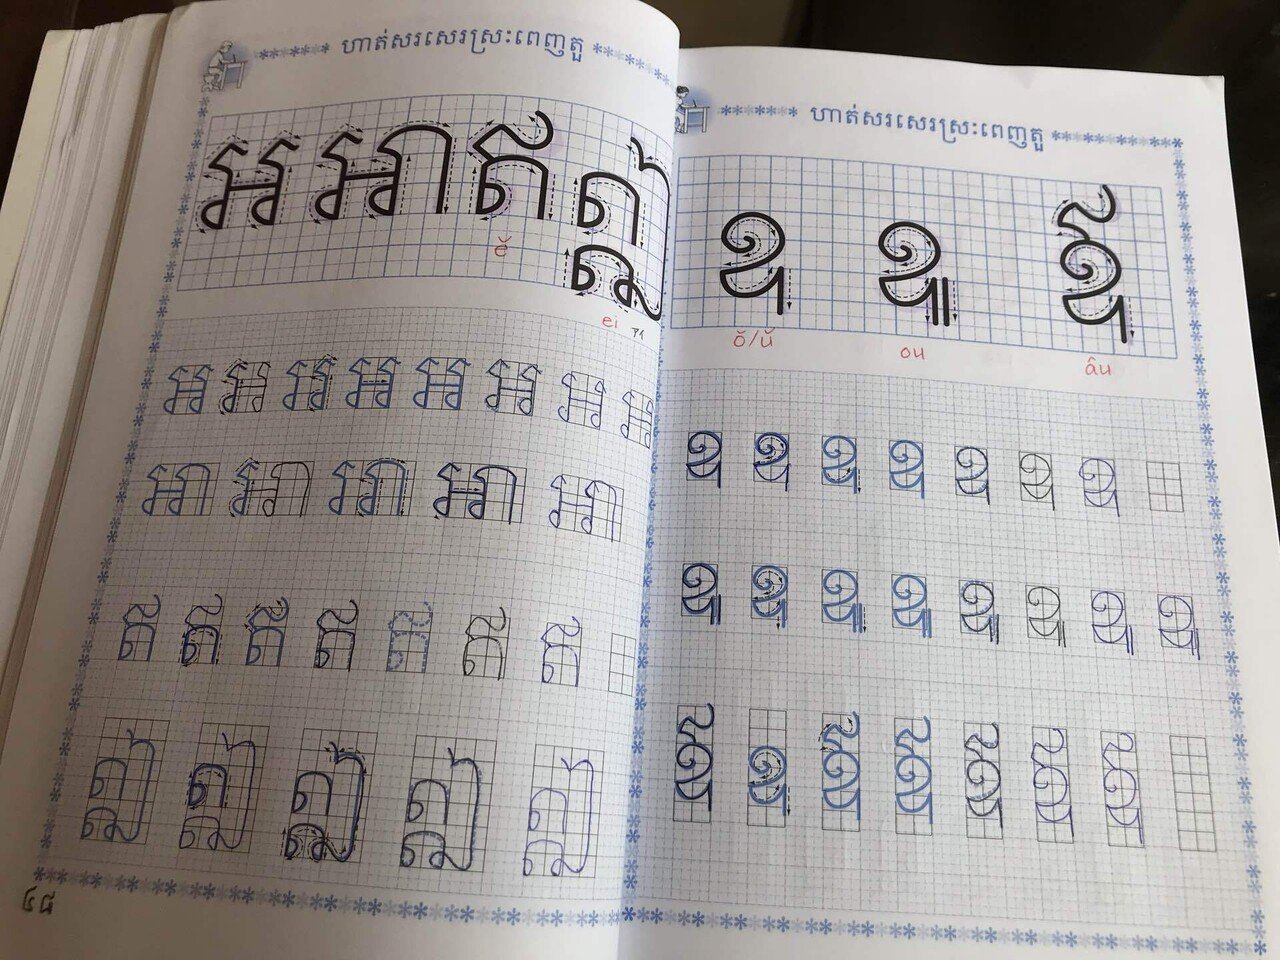 ហាត់សរសេរស្រះពេញតួ
អ អា ឥ ឦ
ĕ
ei
អ អ អ អ អ អ អ អ
អា អា អា អា អា
ឥ ឥ ឥ ឥ ឥ ឥ ឥ
ឦ ឦ ឦ ឦ ឦ
៤៨
ហាត់សរសេរស្រះពេញតួ
ឧ ឩ ឪ
ŏ/ŭ ou âu
ឧ ឧ ឧ ឧ ឧ ឧ ឧ
ឩ ឩ ឩ ឩ ឩ ឩ ឩ ឩ
ឪ ឧ ឪ ឪ ឪ ឪ ឪ